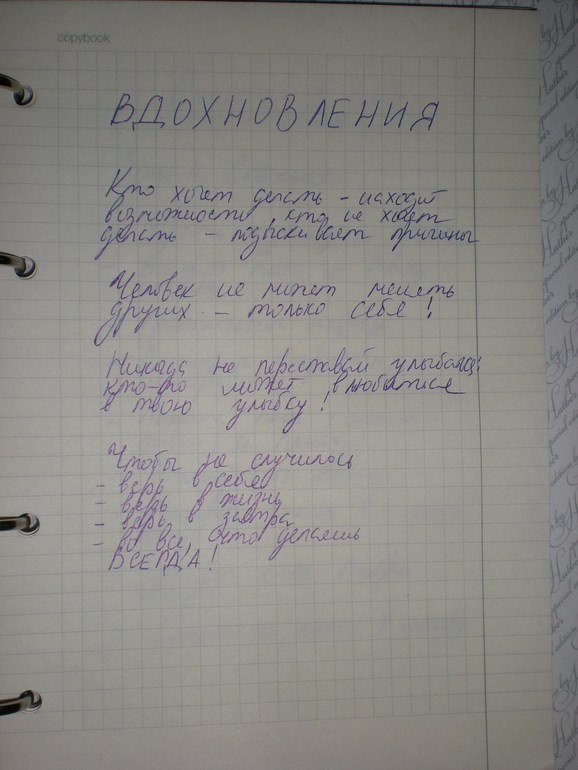 copybook
ВДОХНОВЛЕНИЯ
Кто хочет делать - находит
возможности, кто не хочет
делать - подыскивает причины
Человек не может менять
других - только себя!
Никогда не переставай улыбаться:
кто-то может влюбиться
в твою улыбку!
Чтобы не случилось
- верь в себя
- верь в жизнь
- верь в завтра
- во все, что делаешь
ВСЕГДА!